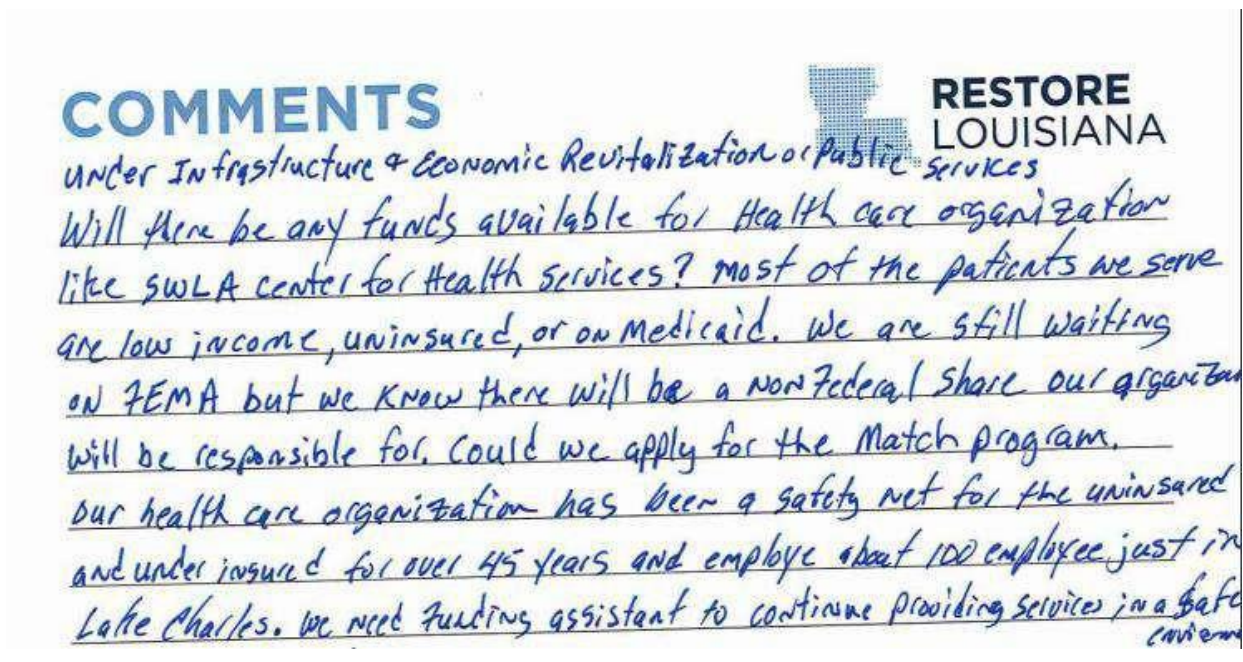 COMMENTS
RESTORE
LOUISIANA
Under Infrastructure & Economic Revitalization or Public Services
Will there be any funds available for Health care organization
like SWLA center for Health Services? Most of the patients we serve
are low income, uninsured, or on Medicaid. We are still waiting
on FEMA but we know there will be a Non Federal Share our organizati
will be responsible for. Could we apply for the Match program.
Our health care organization has been a safety net for the uninsured
and under insured for over 45 years and employe about 100 employee just in
Lake Charles. We need funding assistant to continue providing services in a Safe